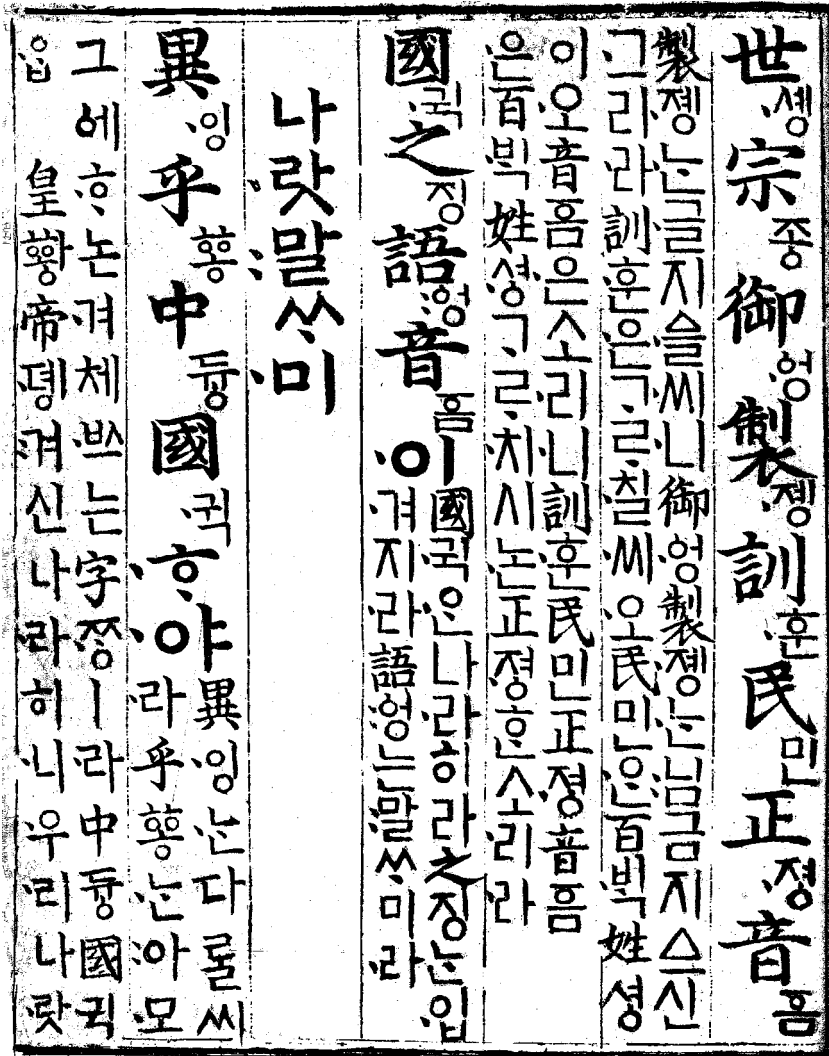 世솅〮宗조ᇰ御ᅌᅥᆼ〮製졩〮訓훈〮民민正져ᇰ〮音ᅙᅳᆷ
製졩〮ᄂᆞᆫ〮글지ᅀᅳᆯ〮씨니〮御ᅌᅥᆼ〮製졩〮ᄂᆞᆫ〮님〯금지ᅀᅳ신
그〮리라〮訓훈〮은ᄀᆞᄅᆞ칠〮씨오〮民민ᄋᆞᆫ〮百ᄇᆡᆨ〮姓셔ᇰ〮
이오〮音ᅙᅳᆷ은소리니〮訓훈〮民민正져ᇰ〮音ᅙᅳᆷ
은〮百ᄇᆡᆨ〮姓셔ᇰ〮ᄀᆞᄅᆞ치〮시논〮正져ᇰ〮ᄒᆞᆫ〮소리〮라〮
國귁〮之징語ᅌᅥᆼ〯音ᅙᅳᆷ이〮
國귁〮ᄋᆞᆫ〮나라〮히라之징ᄂᆞᆫ〮입〮
겨〮지라〮語ᅌᅥᆼ〯는말〯ᄊᆞ미라〮
나랏〮말〯ᄊᆞ미〮
異잉〮乎ᅘᅩᆼ中듀ᇰ國귁〮ᄒᆞ〮야〮
異잉〮ᄂᆞᆫ〮다ᄅᆞᆯ씨
라〮乎ᅘᅩᆼᄂᆞᆫ〮아〯모〮
그에ᄒᆞ논〮겨체〮ᄡᅳ는字ᄍᆞᆼ〮ㅣ라〮中듀ᇰ國귁
ᄋᆞᆫ〮皇ᅘᅪᇰ帝뎽〮겨〯신나라〮히니〮우리〮나랏〮